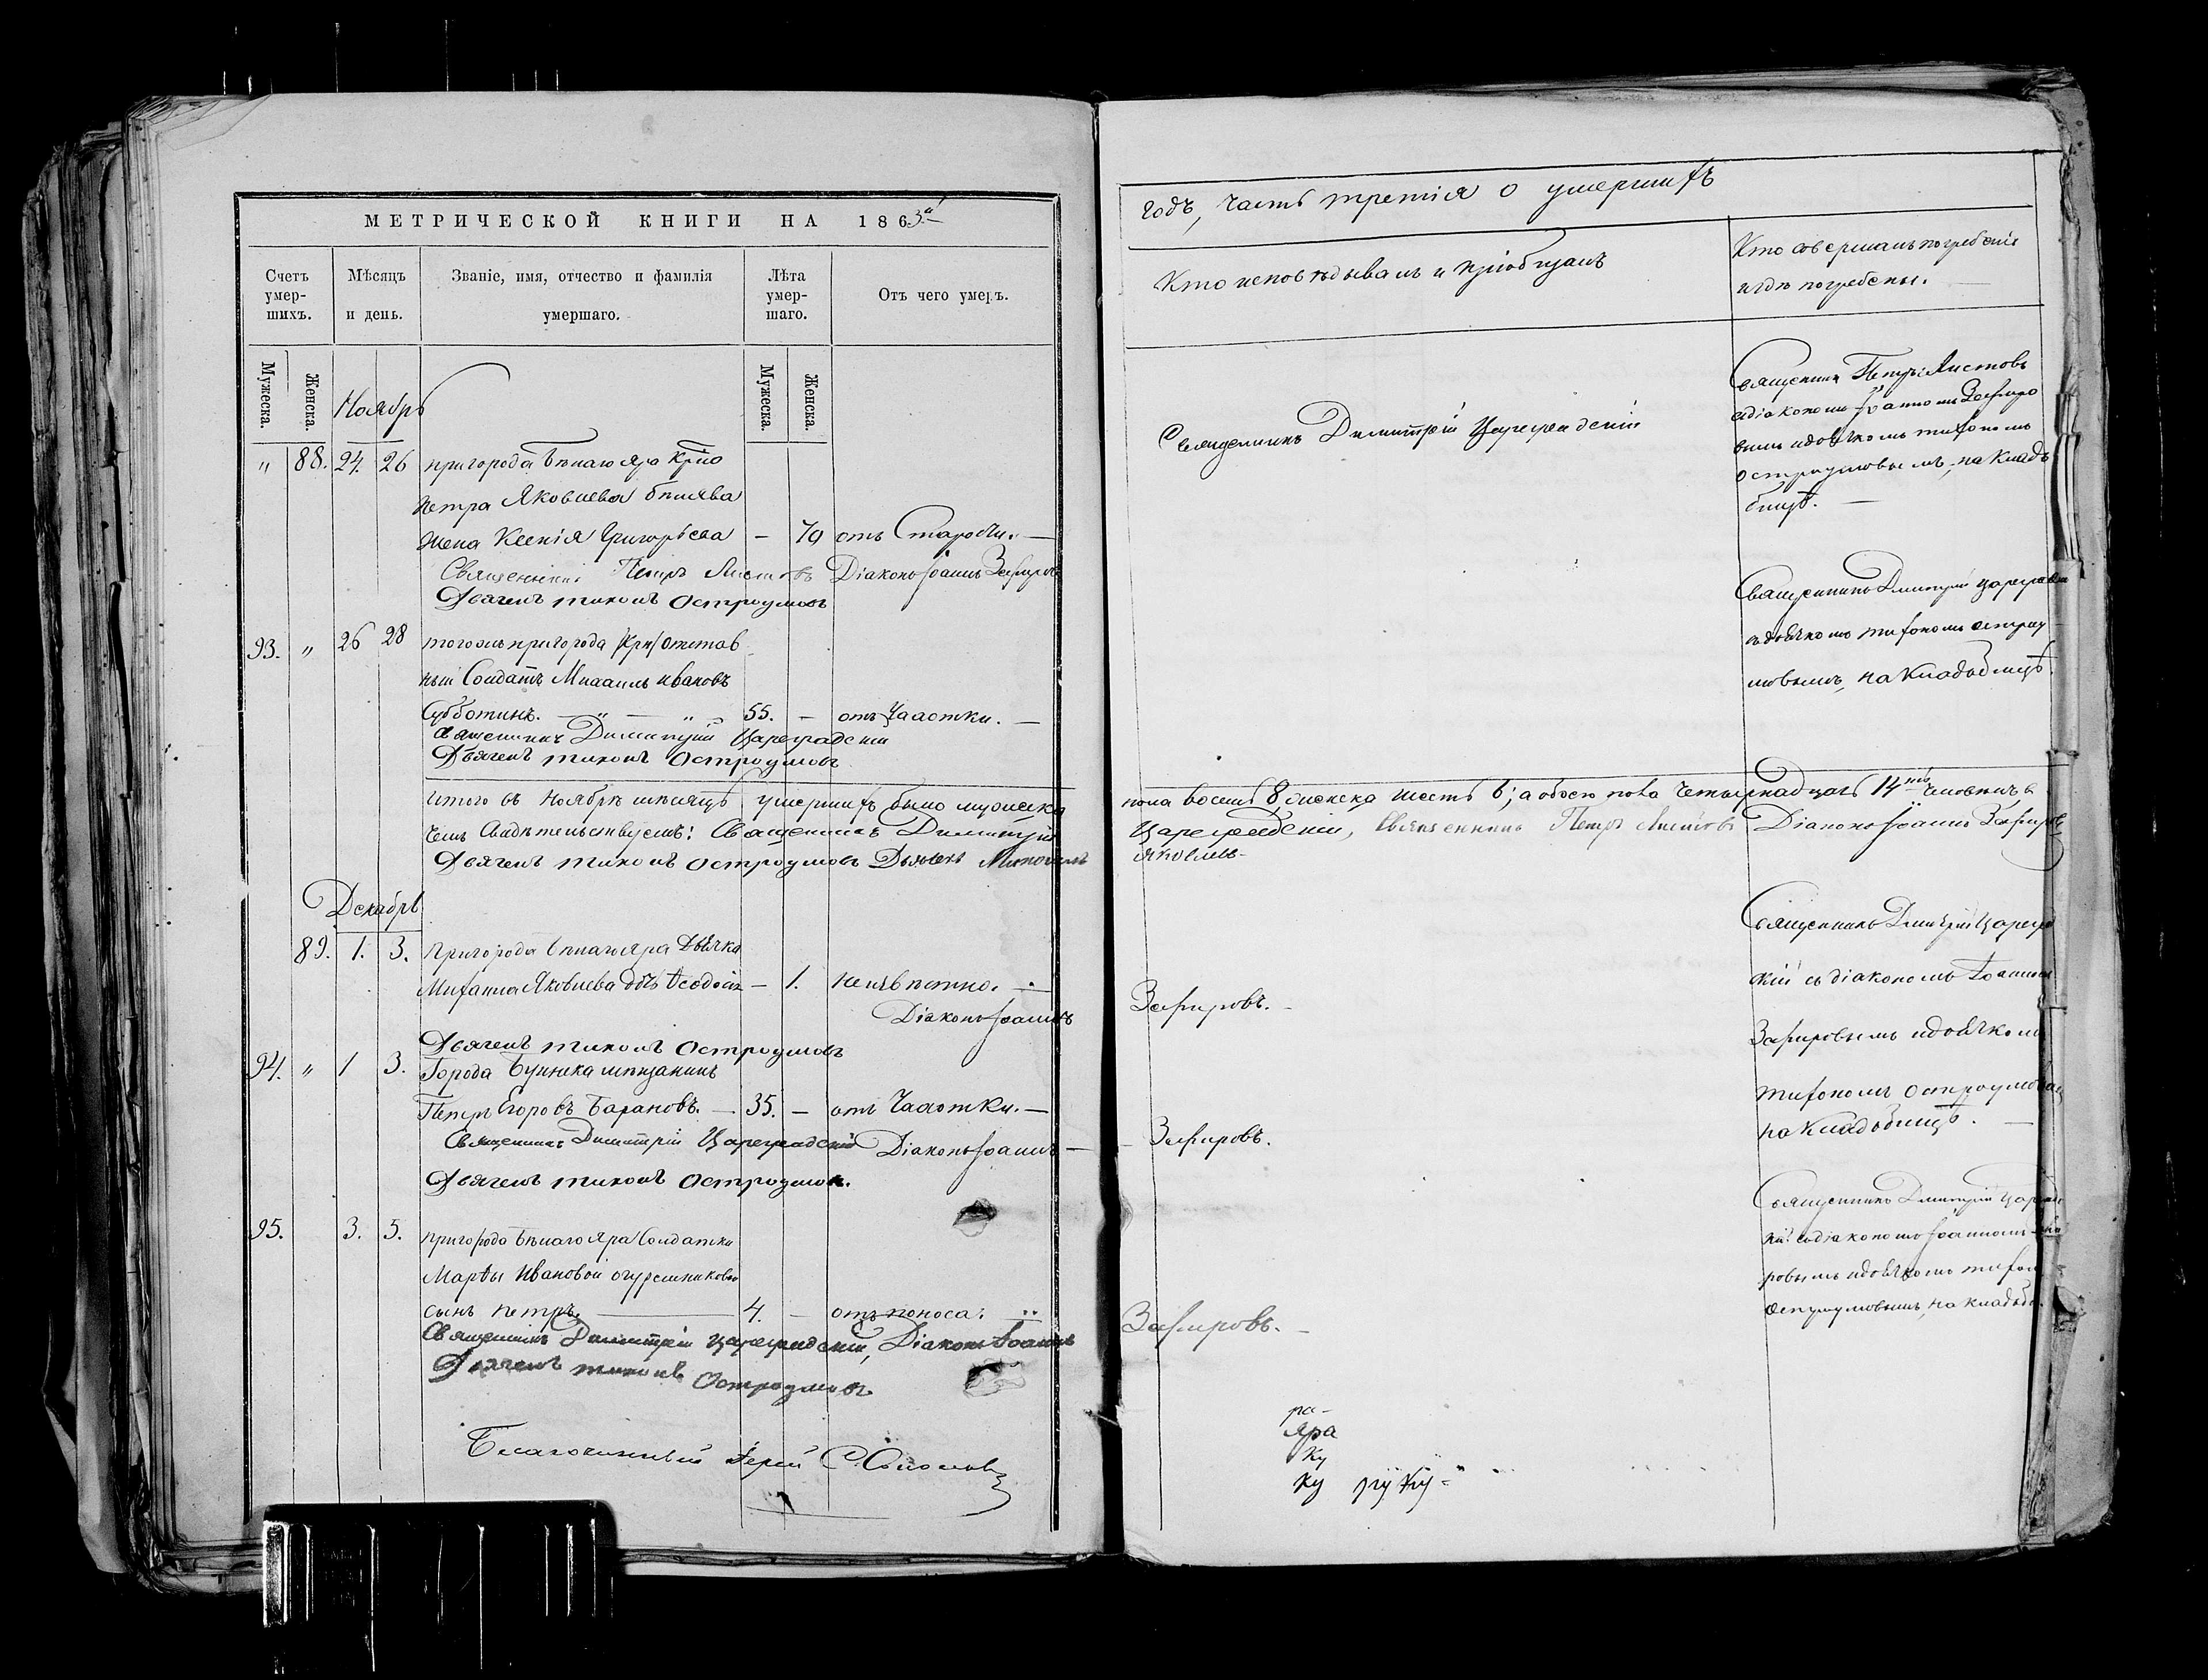 МЕТРИЧЕСКОЙ КНИГИ НА 1863й
Счетъ умер-шихъ.
Мѣсяцъ и день.
Званіе, имя, отчество и фамилія умершаго.
Лѣта умер-шаго.
Отъ чего умеръ.
Мужеска.
Женска.
Мужеска.
Женска.
Ноябрь
" 88. 24. 26 пригорода Бѣлаго яра
Петра Яковлева
жена Ксенія Григорьева — 70 отъ Старости. —
Священникъ Петръ Листовъ Діаконъ Іоаннъ Зефировъ
Дьячекъ тихонъ Остроумовъ
93. " 26 28 тогожъ пригорода отстав
ный Солдатъ Михаилъ ивановъ
Субботинъ. — " — " 55. — отъ Чахотки. —
Священникъ Димитрій Цареградскій
Дьячекъ тихонъ Остроумовъ
итого въ Ноябрѣ мѣсяцѣ умершихъ было мужеска
чемъ Свидѣтельствуемъ: Священникъ Димитрій
Дьячекъ тихонъ Остроумовъ Дьячекъ
Декабрь
89. 1. 3. Пригорода бѣлаго яра Дьячка
Яковлева дочь Ѳеодосія — 1. неизвѣстно. —
Діаконъ Іоаннъ
Дьячекъ тихонъ Остроумовъ
94. " 1 3. Города Буинска мѣщанинъ
Петръ Егоровъ Барановъ. — 35. — отъ Чахотки. —
Священникъ Димитрій Цареградскій Діаконъ Іоаннъ —
Дьячекъ тихонъ Остроумов.
95. 3. 5. пригорода Бѣлаго яра Солдатки
Марѳы Ивановой
сынъ петръ. — 4. — отъ поноса.
Священникъ Димитрій Цареградскій, Діаконъ Іоаннъ
Дьячекъ тихонъ Остроумовъ
Благочинный Іерей
годъ, часть третія о умершихъ
Кто исповѣдывалъ и пріобщалъ
Кто совершалъ погребеніе
и гдѣ погребены. —
Священникъ Димитрій Цареградскій
Священникъ Петръ Листовъ
съ діакономъ Іоанномъ Зефиро
вымъ и дьячкомъ тихономъ
остроумовымъ, на Кладъ
бищѣ. —
Священникъ Димитрій Цареградскій
съ дьячкомъ тихономъ остроу
мовымъ, на Кладъбищѣ.
пола восемь 8, женска шесть 6; а обоего пола Четырнадцать 14ть человѣкъ, в
Цареградскій, Священникъ Петръ Листовъ Діаконъ Іоаннъ Зефировъ
Яковлевъ —
Священникъ Димитрій Царегрд
скій съ діакономъ Іоанномъ
Зефировымъ и дьячкомъ
тихономъ Остроумовым
на Кладъбищѣ. —
Зефировъ. —
Зефировъ.
Священникъ Димитрій
кій съ діакономъ Іоанномъ
ровымъ и дьячкомъ тихон
Остроумовымъ, на кладъби.
Зефировъ. —
ра-
Яра
Ку
ку